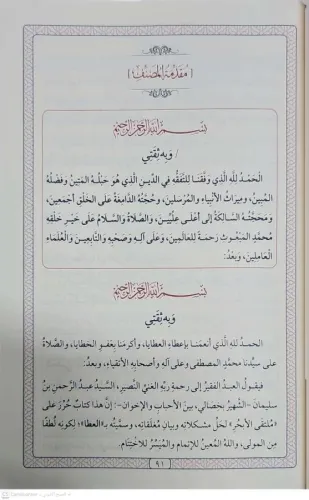 [مقدمة المصنف]
بسم الله الرحمن الرحيم
/ وَبِهِ ثِقَتِي
الحَمْدُ للهِ الَّذِي وَفَّقَنَا لِلتَّفَقُّهِ فِي الدِّينِ الَّذِي هُوَ حَبْلُهُ المَتِينُ وَفَضْلُهُ
المُبِينُ، وَمِيرَاثُ الأَنْبِيَاءِ وَالمُرْسَلِينَ، وَحُجَّتُهُ الدَّامِغَةُ عَلَى الخَلْقِ أَجْمَعِينَ،
وَمَحَجَّتُهُ السَّالِكَةُ إِلَى أَعْلَى عِلِّيِّينَ، وَالصَّلَاةُ وَالسَّلَامُ عَلَى خَيْرِ خَلْقِهِ
مُحَمَّدٍ المَبْعُوثِ رَحْمَةً لِلعَالَمِينَ، وَعَلَى آلِهِ وَصَحْبِهِ وَالتَّابِعِينَ وَالعُلَمَاءِ
العَامِلِينَ، وَبَعْدُ:
بسم الله الرحمن الرحيم
وَبِهِ ثِقَتِي
الحمدُ للهِ الَّذي أنعمَنَا بإعطاءِ العطايا، وأكرمَنا بعَفوِ الخطايا، والصَّلاةُ
على سيِّدنا محمَّدٍ المصطفى وعلى آلهِ وأصحابِهِ الأتقياءِ، وبعدُ:
فيقولُ العبدُ الفقيرُ إلى رحمةِ ربِّهِ الغنيِّ النَّصيرِ، السَّيِّدُ عبدُ الرَّحمنِ بنُ
سليمانَ -الشَّهيرُ بجصالي، بينَ الأحبابِ والإخوانِ-: إنَّ هذا كتابٌ حُرِّرَ على
«مُلتقى الأبحُرِ» لحَلِّ مشكلاتِهِ وبيانِ مُغلَقاتِهِ، وسمَّيتُه بـ«العطا»؛ لِكونِهِ لُطفًا
مِن المولى، واللهُ المُعينُ للإتمامِ والمُيسِّرُ للاختِتامِ.
٩١
CamScanner